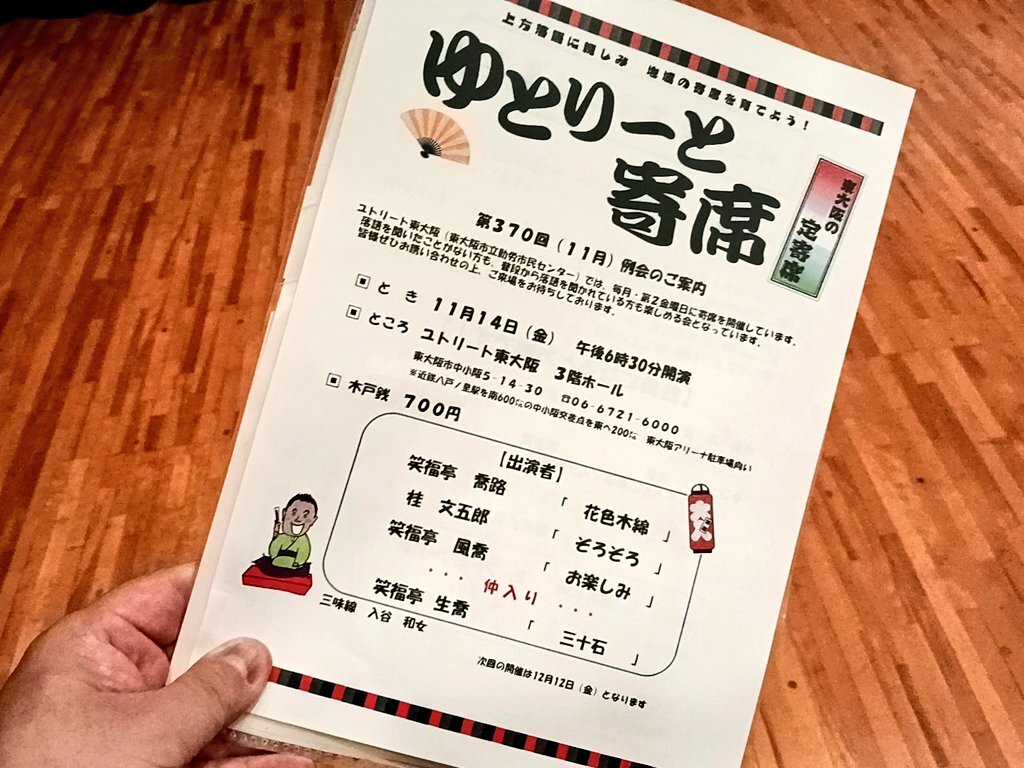 上方落語に親しみ 地域の寄席を育てよう！
ゆとりーと
寄席
東大阪の
定寄席
第370回（11月）例会のご案内
ユトリート東大阪（東大阪市立勤労市民センター）では、毎月・第2金曜日に寄席を開催しています。
落語を聞いたことがない方も、普段から落語を聞かれている方も楽しめる会となっています。
皆様ぜひお誘い合わせの上、ご来場をお待ちしております。
とき 11月14日（金） 午後6時30分開演
ところ ユトリート東大阪 3階ホール
東大阪市中小阪5-14-30 ☎06-6721-6000
※近鉄八戸ノ里駅を南600㍍の中小阪交差点を東へ200㍍ 東大阪アリーナ駐車場向い
木戸銭 700円
【出演者】
笑福亭 喬路 「 花色木綿 」
桂 文五郎 「 そろそろ 」
笑福亭 風喬 「 お楽しみ 」
・・・ 仲入り ・・・
笑福亭 生喬 「 三十石 」
三味線 入谷 和女
大入
次回の開催は12月12日（金）となります